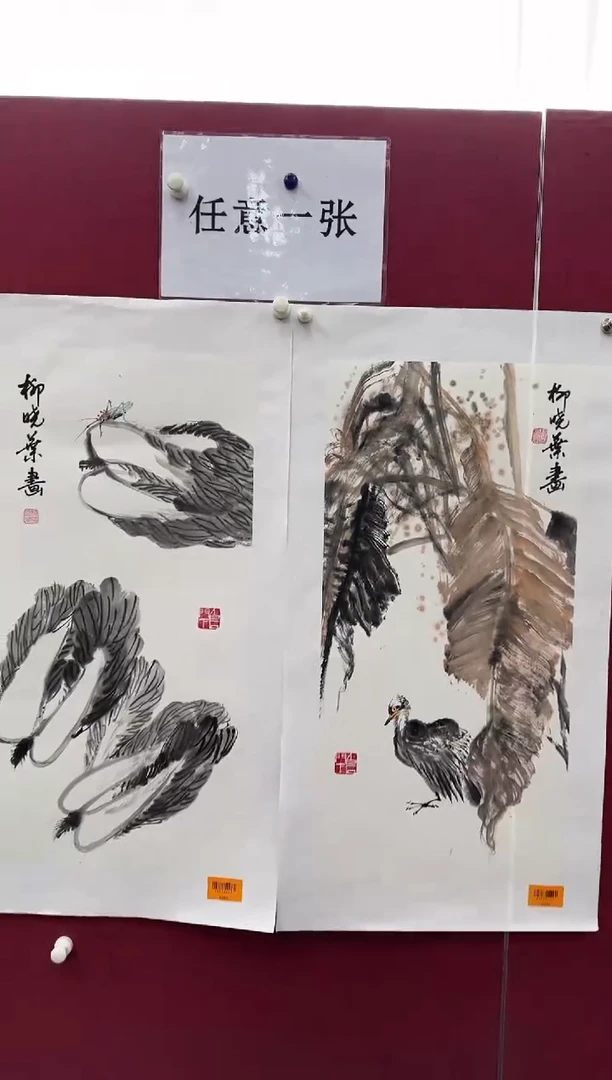 任意一张
柳晓叶画
柳晓叶画